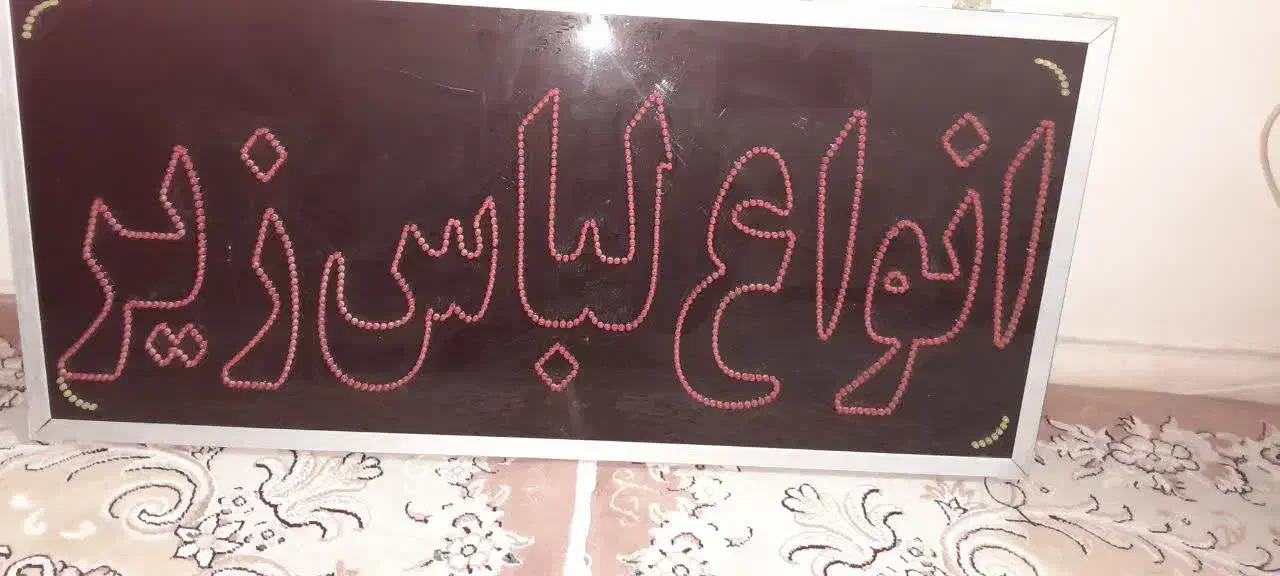 انواع لباس زیر